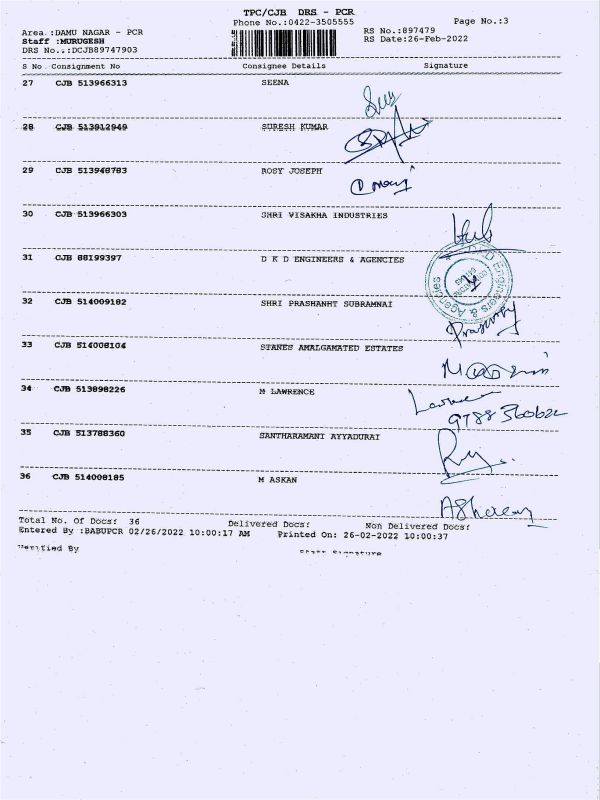 TPC/CJB DRS - PCR
Phone No.:0422-3505555
Page No.:3
Area :DAMU NAGAR - PCR
RS No.:897479
Staff :MURUGESH
RS Date:26-Feb-2022
DRS No.:DCJB89747903
S No Consignment No Consignee Details Signature
27 CJB 513966313 SEENA
28 CJB 513912949 SURESH KUMAR
29 CJB 513948783 ROSY JOSEPH
30 CJB 513966303 SHRI VISAKHA INDUSTRIES
31 CJB 88199397 D K D ENGINEERS & AGENCIES
D Engineers & Agencies
32 CJB 514009182 SHRI PRASHANHT SUBRAMNAI
33 CJB 514008104 STANES AMALGAMATED ESTATES
34 CJB 513898226 M LAWRENCE
35 CJB 513788360 SANTHARAMANI AYYADURAI
36 CJB 514008185 M ASKAN
Total No. Of Docs: 36 Delivered Docs: Non Delivered Docs:
Entered By :BABUPCR 02/26/2022 10:00:17 AM Printed On: 26-02-2022 10:00:37
Verified By Staff Signature